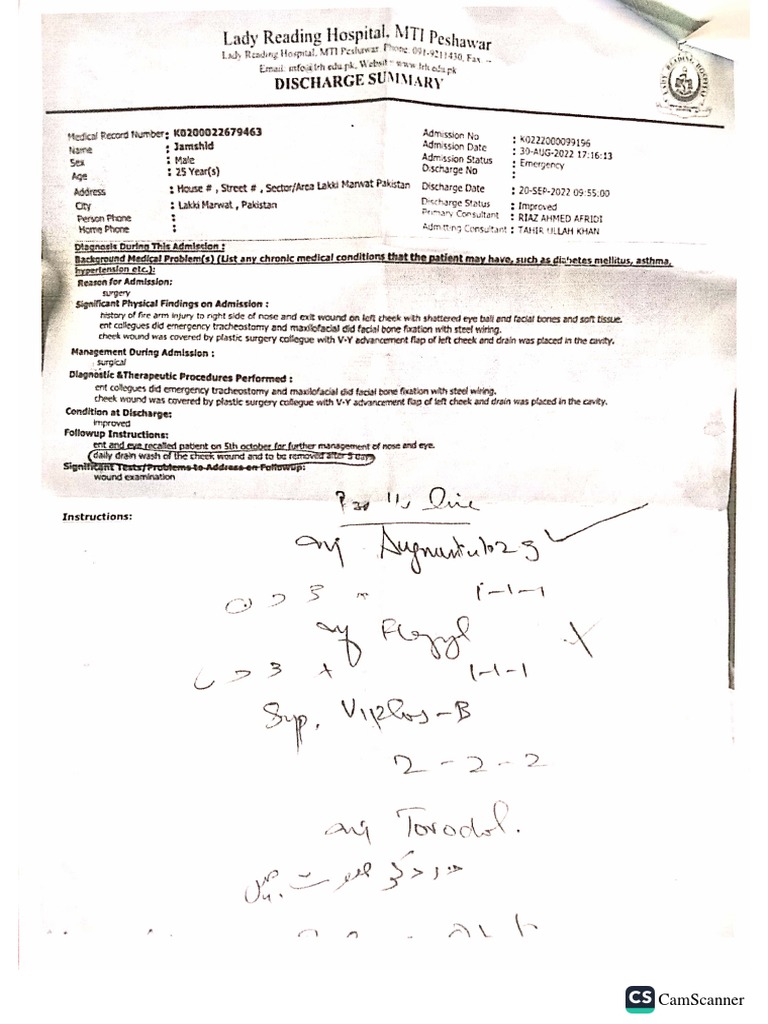 Lady Reading Hospital, MTI Peshawar
Lady Reading Hospital, MTI Peshawar, Phone: 091-9211430, Fax --
Email: info@lrh.edu.pk, Website www.lrh.edu.pk
DISCHARGE SUMMARY
Medical Record Number: K0200022679463
Name : Jamshid
Sex : Male
Age : 25 Year(s)
Address : House # , Street # , Sector/Area Lakki Marwat Pakistan
City : Lakki Marwat , Pakistan
Person Phone :
Home Phone :
Admission No : K0222000099196
Admission Date : 30-AUG-2022 17:16:13
Admission Status : Emergency
Discharge No :
Discharge Date : 20-SEP-2022 09:55:00
Discharge Status : Improved
Primary Consultant : RIAZ AHMED AFRIDI
Admitting Consultant : TAHIR ULLAH KHAN
Diagnosis During This Admission :
Background Medical Problem(s) (List any chronic medical conditions that the patient may have, such as diabetes mellitus, asthma,
hypertension etc.):
Reason for Admission:
surgery
Significant Physical Findings on Admission :
history of fire arm injury to right side of nose and exit wound on left cheek with shattered eye ball and facial bones and soft tissue.
ent collegues did emergency tracheostomy and maxilofacial did facial bone fixation with steel wiring.
cheek wound was covered by plastic surgery collegue with V-Y advancement flap of left cheek and drain was placed in the cavity.
Management During Admission :
surgical
Diagnostic &Therapeutic Procedures Performed :
ent collegues did emergency tracheostomy and maxilofacial did facial bone fixation with steel wiring.
cheek wound was covered by plastic surgery collegue with V-Y advancement flap of left cheek and drain was placed in the cavity.
Condition at Discharge:
improved
Followup Instructions:
ent and eye recalled patient on 5th october for further management of nose and eye.
daily drain wash of the cheek wound and to be removed after 5 days
Significant Tests/Problems to Address on Followup:
wound examination
Instructions:
1-1-1
inj Flagyl
1-1-1
Syp.
2-2-2
inj Torodol.
CS CamScanner